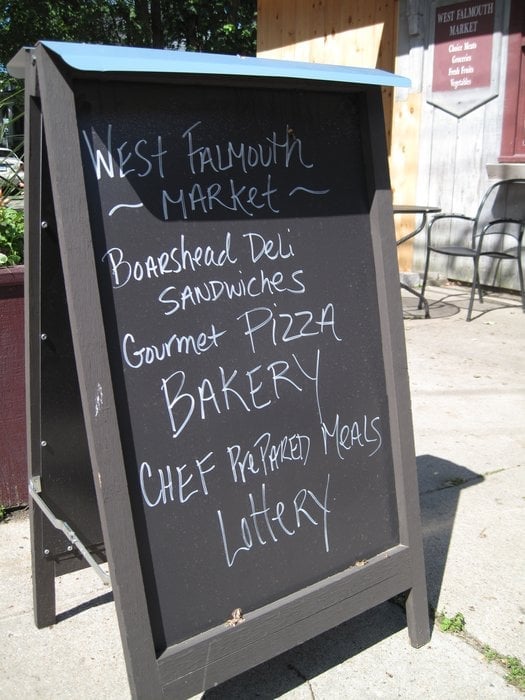 West Falmouth
~ Market ~
Boarshead Deli
Sandwiches
Gourmet Pizza
Bakery
Chef Prepared Meals
Lottery
WEST FALMOUTH
MARKET
Choice Meats
Groceries
Fresh Fruits
Vegetables